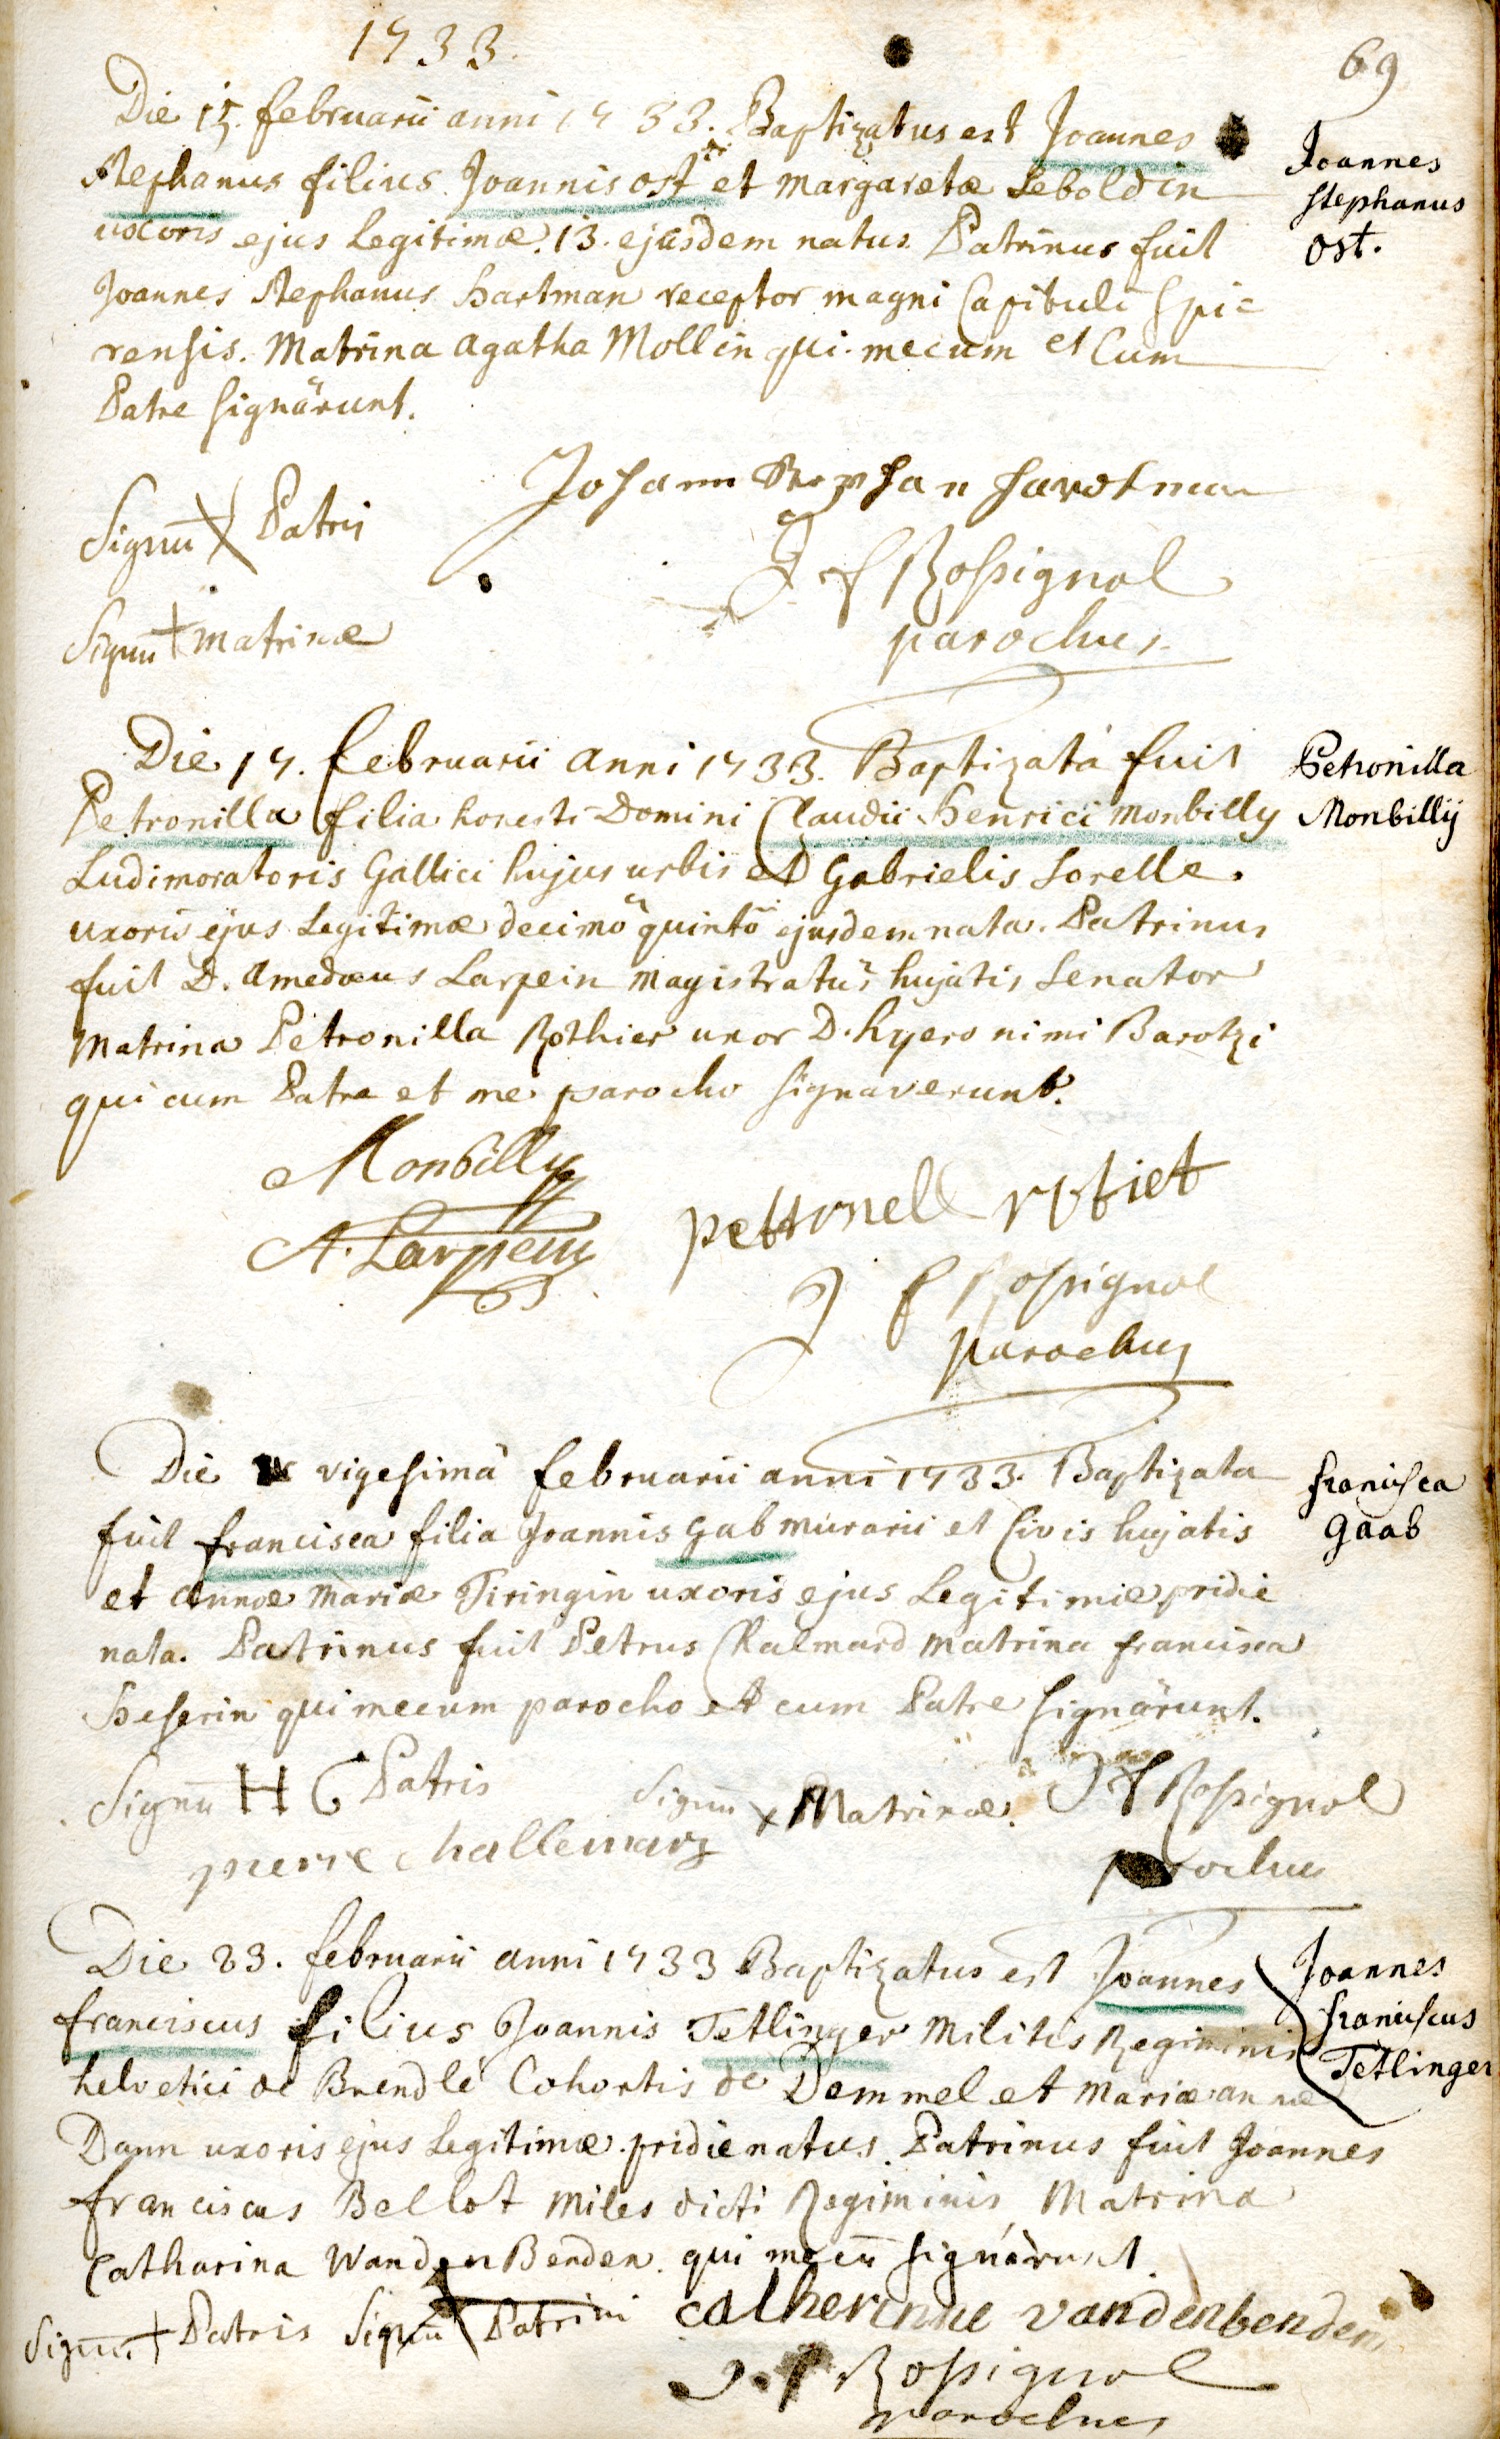 1733.
69
Die 15. februarii anni 1733. Baptizatus est Joannes
Stephanus filius Joannis ost et Margaretæ Seboldin
uxoris ejus Legitimæ. 13. ejusdem natus. Patrinus fuit
Joannes Stephanus Hartman receptor magni Capituli Spi=
rensis. Matrina Agatha Mollin qui mecum et Cum
Patre signârunt.
Joannes
Stephanus
Ost.
Johann Stephan Hardtman
Signu̅ Patris
J f Rossignol
parochus
Signu̅ + matrinæ
Die 17. februarii anni 1733. Baptizata fuit
Petronilla filia honesti Domini Claudii Henrici Monbilly
Ludimoratoris Gallici hujus urbis et Gabrielis Sorelle
uxoris ejus Legitimæ decimô quintô ejusdem nata. Patrinus
fuit D. Amedæus Larpein Magistratûs hujatis Senator
Matrina Petronilla Rothier uxor D. hyeronimi Barotzi
qui cum Patre et me parocho signaverunt.
Petronilla
Monbillÿ
Monbilly
A. Larpein
pettronell rotiet
J f Rossignol
parochus
Die vigesimâ februarii anni 1733. Baptizata
fuit francisca filia Joannis Gab murarii et Civis hujatis
et Annæ Mariæ Tiringin uxoris ejus Legitimæ pridie
nata. Patrinus fuit Petrus Chalmard Matrina francisca
Heserin qui mecum parocho et cum Patre signârunt.
francisca
Gaab
Signu̅ H G Patris
Signu̅ x Matrinæ.
J f Rossignol
parochus
pierre challemarz
Die 23. februarii anni 1733 Baptizatus est Joannes
franciscus filius Joannis Tetlinger Militis Regiminis
helvetici de Brendlé Cohortis de Demmel et Mariæ annæ
Dann uxoris ejus Legitimæ pridie natus. Patrinus fuit Joannes
franciscus Bellot Miles dicti Regiminis, Matrina
Catharina Wanden Benden. qui mecu̅ signârunt
Joannes
franciscus
Tetlinger
Signu̅ + Patris Signu̅ Patrini catherinne vandenbenden
J. f Rossignol
parochus